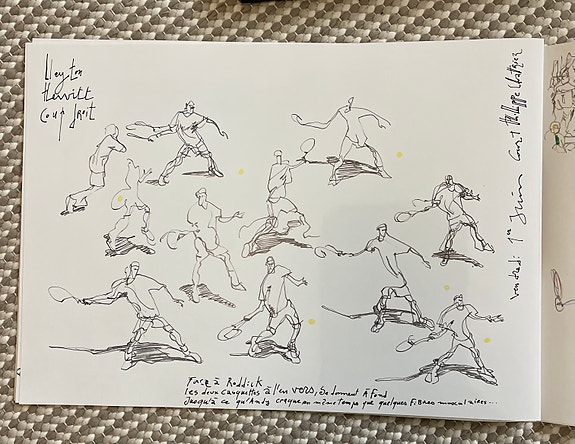 Lleyton
Hewitt
Coup droit
Vendredi 1er Juin Court Philippe Chatrier
Face à Roddick
les deux casquettes à l'envers, se donnent à fond
Jusqu'à ce qu'Andy craque en même temps que quelques fibres musculaires...